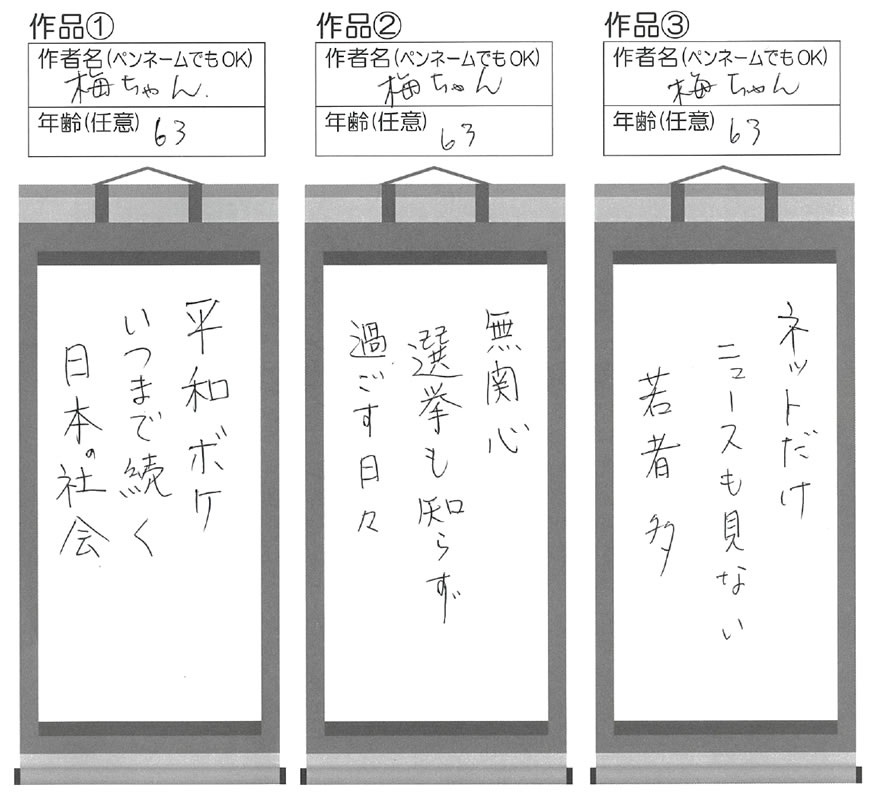 作品①
作者名(ペンネームでもOK)
梅ちゃん.
年齢(任意) 63
平和ボケ
いつまで続く
日本の社会
作品②
作者名(ペンネームでもOK)
梅ちゃん
年齢(任意) 63
無関心
選挙も知らず
過ごす日々
作品③
作者名(ペンネームでもOK)
梅ちゃん
年齢(任意) 63
ネットだけ
ニュースも見ない
若者多